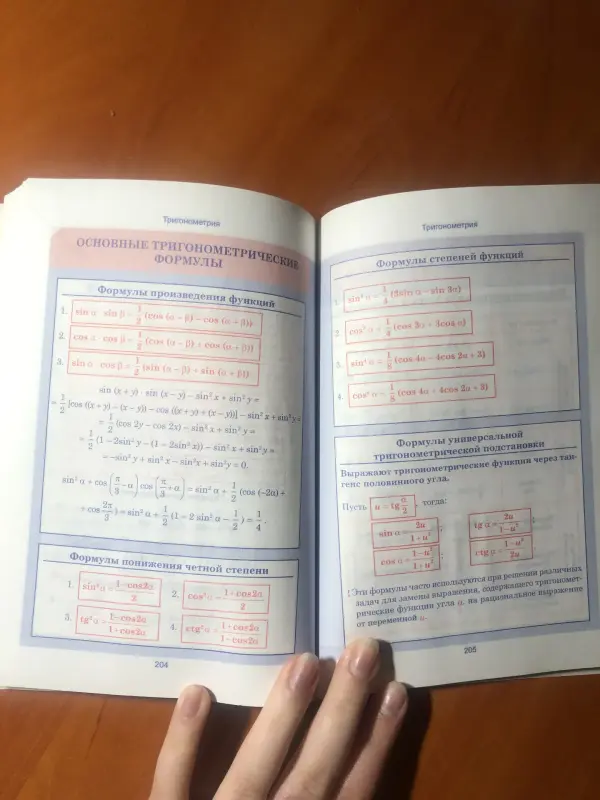 Тригонометрия
ОСНОВНЫЕ ТРИГОНОМЕТРИЧЕСКИЕ
ФОРМУЛЫ
Формулы произведения функций
1. sin α · sin β = 1/2 (cos (α − β) − cos (α + β))
2. cos α · cos β = 1/2 (cos (α − β) + cos (α + β))
3. sin α · cos β = 1/2 (sin (α − β) + sin (α + β))
sin (x + y) · sin (x − y) − sin² x + sin² y =
= 1/2 [cos ((x + y) − (x − y)) − cos ((x + y) + (x − y))] − sin² x + sin² y =
= 1/2 (cos 2y − cos 2x) − sin² x + sin² y =
= 1/2 (1 − 2sin² y − (1 − 2sin² x)) − sin² x + sin² y =
= −sin² y + sin² x − sin² x + sin² y = 0.
sin² α + cos (π/3 − α) cos (π/3 + α) = sin² α + 1/2 (cos (−2α) +
+ cos 2π/3) = sin² α + 1/2 (1 − 2 sin² α − 1/2) = 1/4.
Формулы понижения четной степени
1. sin² α = 1−cos2α/2 2. cos² α = 1+cos2α/2
3. tg² α = 1−cos2α/1+cos2α 4. ctg² α = 1+cos2α/1−cos2α
204
Тригонометрия
Формулы степеней функций
1. sin³ α = 1/4 (3sin α − sin 3α)
2. cos³ α = 1/4 (cos 3α + 3cos α)
3. sin⁴ α = 1/8 (cos 4α − 4cos 2α + 3)
4. cos⁴ α = 1/8 (cos 4α + 4cos 2α + 3)
Формулы универсальной
тригонометрической подстановки
Выражают тригонометрические функции через тан-
генс половинного угла.
Пусть u = tg α/2, тогда:
sin α = 2u/1+u²; tg α = 2u/1−u²;
cos α = 1−u²/1+u²; ctg α = 1−u²/2u
Эти формулы часто используются при решении различных
задач для замены выражения, содержащего тригономет-
рические функции угла α, на рациональное выражение
от переменной u.
205